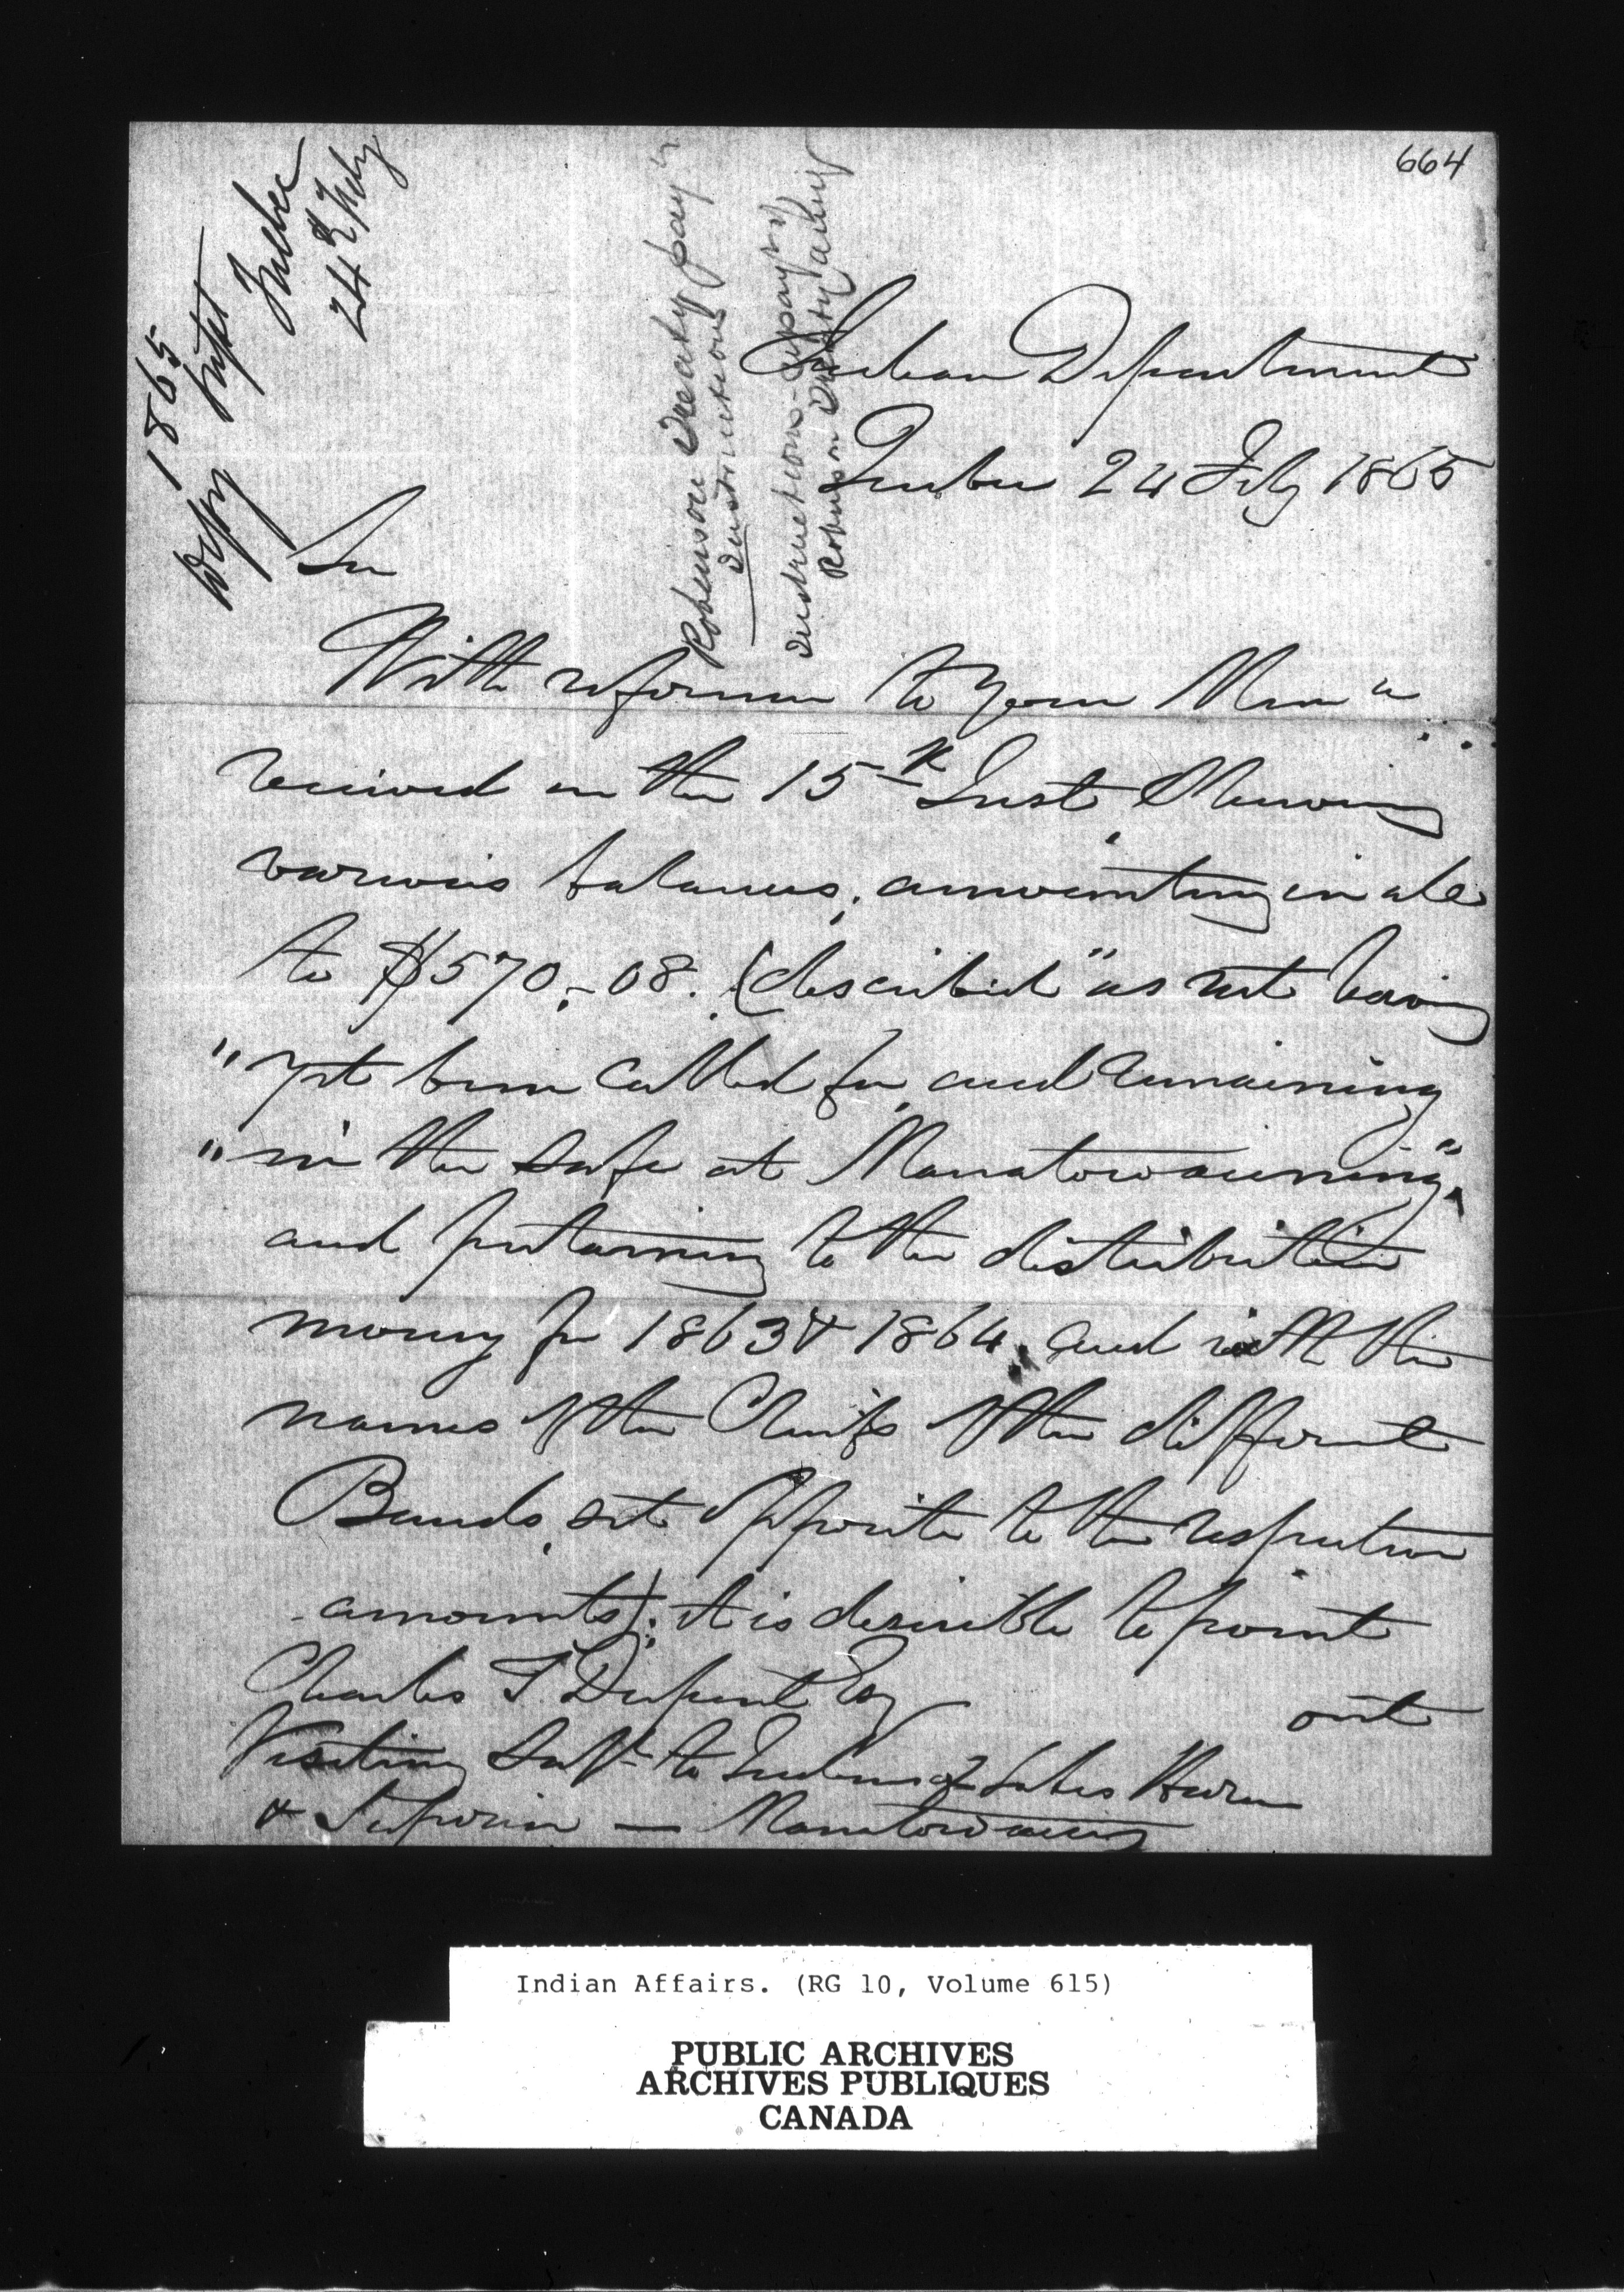 664
1865
Depy Supt
Quebec
24th Feby
Robinson Treaty paymts
Instructions
Instructions - re paymt of
Robinson Treaty Annuity
Indian Department
Quebec 24 Feby 1865
Sir
With reference to your Mem
received on the 15th Inst, Shewing
various balances, amounting in all
to $570,-08. (described "as not having
"yet been called for, and remaining
"in the safe at Manatowauning",
and pertaining to the distribution
money for 1863 & 1864, and with the
names of the Chiefs of the different
Bands, set opposite to the respective
amounts); it is desirable to point
out
Charles T. Dupont Esq
Visiting Supt to Indians of Lakes Huron
& Superior — Manatowauning
Indian Affairs. (RG 10, Volume 615)
PUBLIC ARCHIVES
ARCHIVES PUBLIQUES
CANADA